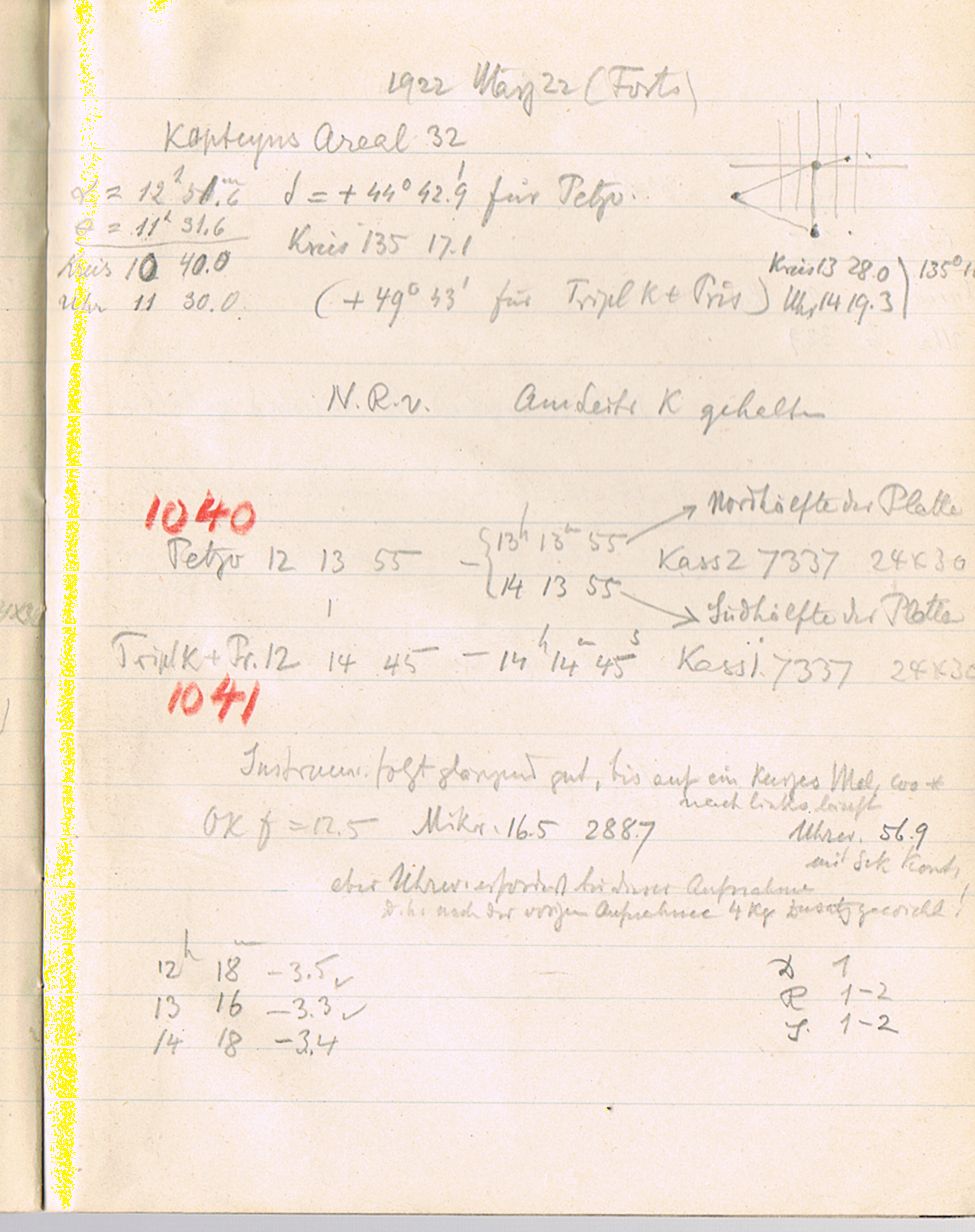 1922 März 22 (Forts)
Kapteyns Areal 32
α = 12ʰ 51.6ᵐ δ = +44° 42.'9 für Petzv.
θ = 11ʰ 31.6
Kreis 135 17.1
Kreis 10 40.0
Kreis 13 28.0
135°
Uhr 11 30.0
(+49° 43' für Tripl K + Pris)
Uhr 14 19.3
N.R.v. Am Leitr K gehalten
1040
Nordhälfte der Platte
Petzv 12 13 55 – 13ʰ 13ᵐ 55 Kass 2 7337 24×30
14 13 55
Südhälfte der Platte
Tripl K + Pr. 12 14 45 – 14ʰ 14ᵐ 45ˢ Kass 1. 7337 24×30
1041
Instrum. folgt glänzend gut, bis auf ein kurzes Mal, wo *
nach links läuft
OK f = 12.5 Mikr. 16.5 288.7 Uhrw. 56.9
mit Sek Kont,
aber Uhrw. erfordert bei dieser Aufnahme
D.h. nach der vorigen Aufnahme 4 Kg Zusatzgewicht!
12ʰ 18ᵐ –3.5 ✓
13 16 –3.3 ✓
14 18 –3.4
D 1
R 1–2
S. 1–2